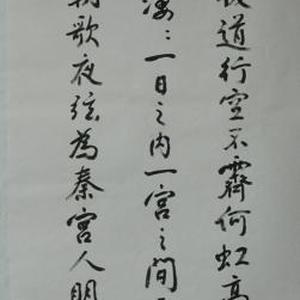 道行空不霽何虹高
淒:一日之内一宮之間
朝歌夜弦為秦宮人明